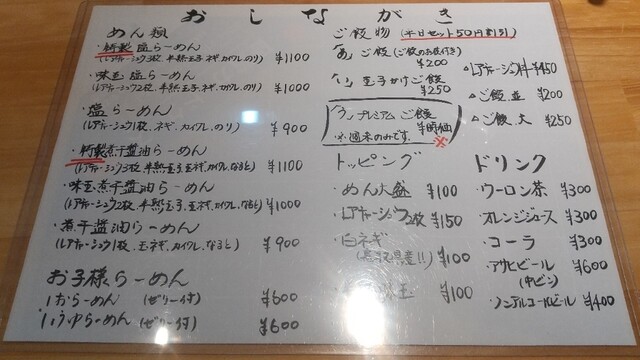 おしながき
めん類
・特製塩らーめん
(レアチャーシュウ3枚、半熟玉子、ネギ、カイワレ、のり) ¥1100
・味玉塩らーめん
(レアチャーシュウ2枚、半熟玉子、ネギ、カイワレ、のり) ¥1000
・塩らーめん
(レアチャーシュウ1枚、ネギ、カイワレ、のり) ¥900
・特製煮干醤油らーめん
(レアチャーシュウ3枚、半熟玉子、玉ネギ、カイワレ、なると) ¥1100
・味玉煮干醤油らーめん
(レアチャーシュウ2枚、半熟玉子、玉ネギ、カイワレ、なると) ¥1000
・煮干醤油らーめん
(レアチャーシュウ1枚、玉ネギ、カイワレ、なると) ¥900
お子様らーめん
しおらーめん (ゼリー付) ¥600
しょうゆらーめん (ゼリー付) ¥600
ご飯物 (平日セット50円割引)
「あ」ご飯 (ご飯のお供付き)
¥200
「い」玉子かけご飯
¥250
「う」プレミアムご飯
¥時価
※週末のみです。
・レアチャーシュウ丼 ¥450
・ご飯並 ¥200
・ご飯大 ¥250
トッピング
・めん大盛 ¥100
・レアチャーシュウ2枚 ¥150
・白ネギ
¥100
玉 ¥100
ドリンク
・ウーロン茶 ¥300
・オレンジジュース ¥300
・コーラ ¥300
・アサヒビール ¥600
(中ビン)
・ノンアルコールビール ¥400